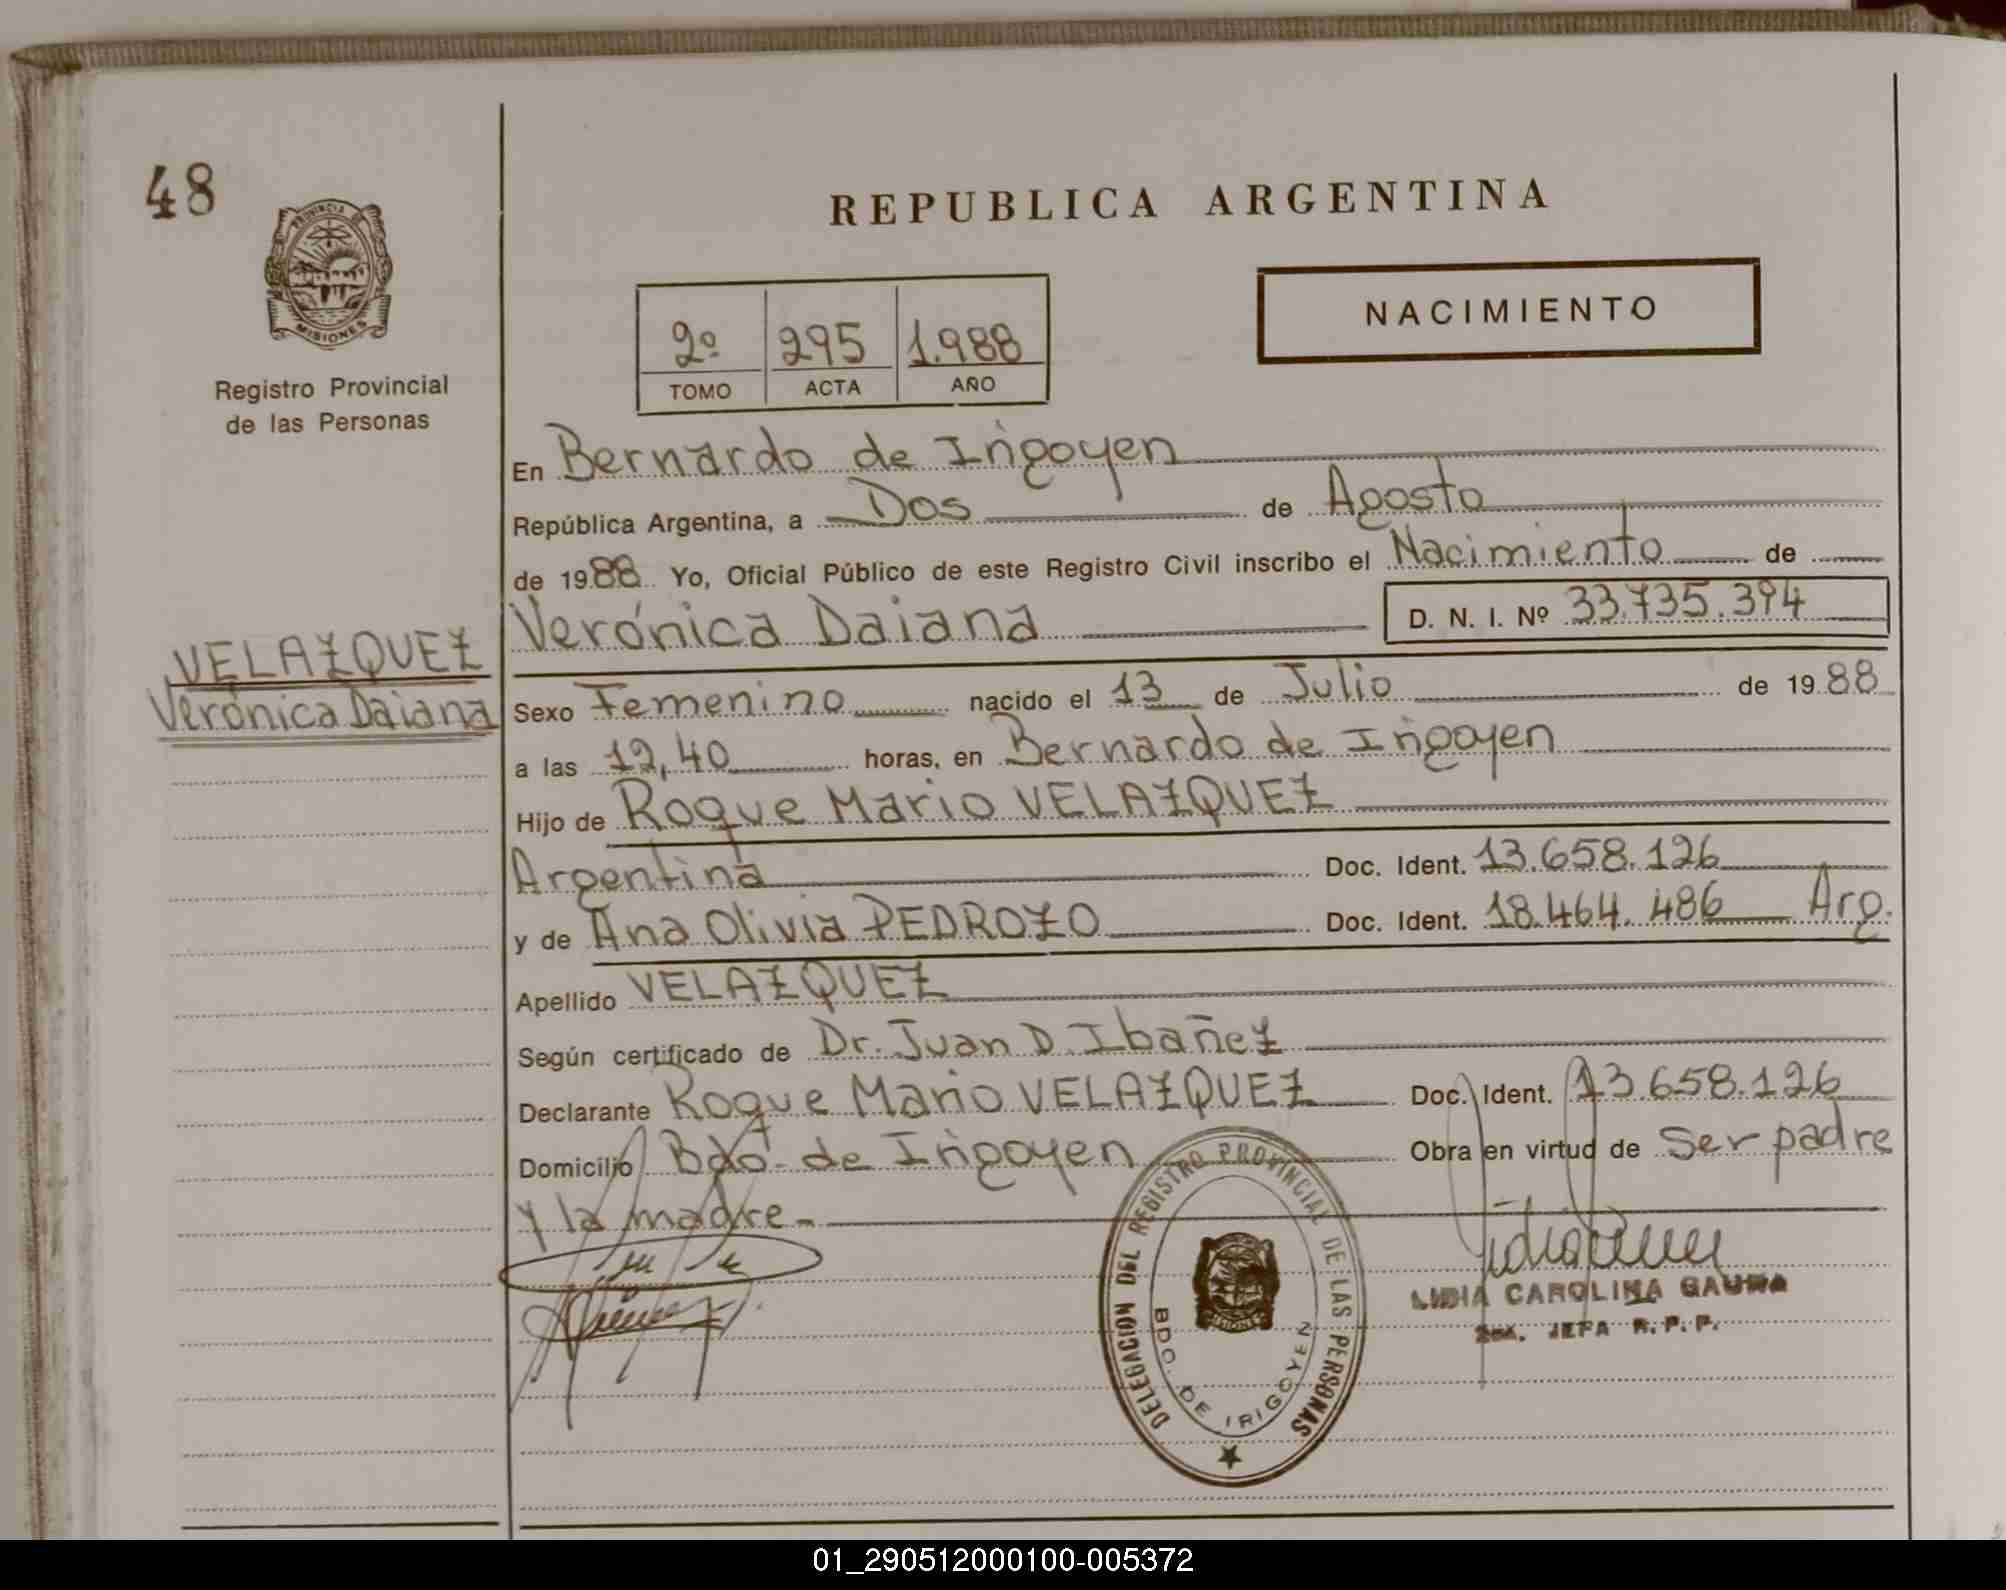 48
PROVINCIA DE
MISIONES
Registro Provincial
de las Personas
VELAZQUEZ
Verónica Daiana
REPUBLICA ARGENTINA
NACIMIENTO
2º 295 1.988
TOMO ACTA AÑO
En Bernardo de Irigoyen
República Argentina, a Dos de Agosto
de 1988 Yo, Oficial Público de este Registro Civil inscribo el Nacimiento de
Verónica Daiana D. N. I. Nº 33.735.394
Sexo Femenino nacido el 13 de Julio de 1988
a las 12,40 horas, en Bernardo de Irigoyen
Hijo de Roque Mario VELAZQUEZ
Argentina Doc. Ident. 13.658.126
y de Ana Olivia PEDROZO Doc. Ident. 18.464.486 Arg.
Apellido VELAZQUEZ
Según certificado de Dr. Juan D. Ibañez
Declarante Roque Mario VELAZQUEZ Doc. Ident. 13.658.126
Domicilio Bdo. de Irigoyen Obra en virtud de ser padre
y la madre.-
DELEGACION DEL REGISTRO PROVINCIAL DE LAS PERSONAS
BDO. DE IRIGOYEN
MISIONES
LIDIA CAROLINA GAUNA
JEFA R. P. P.
01_290512000100-005372